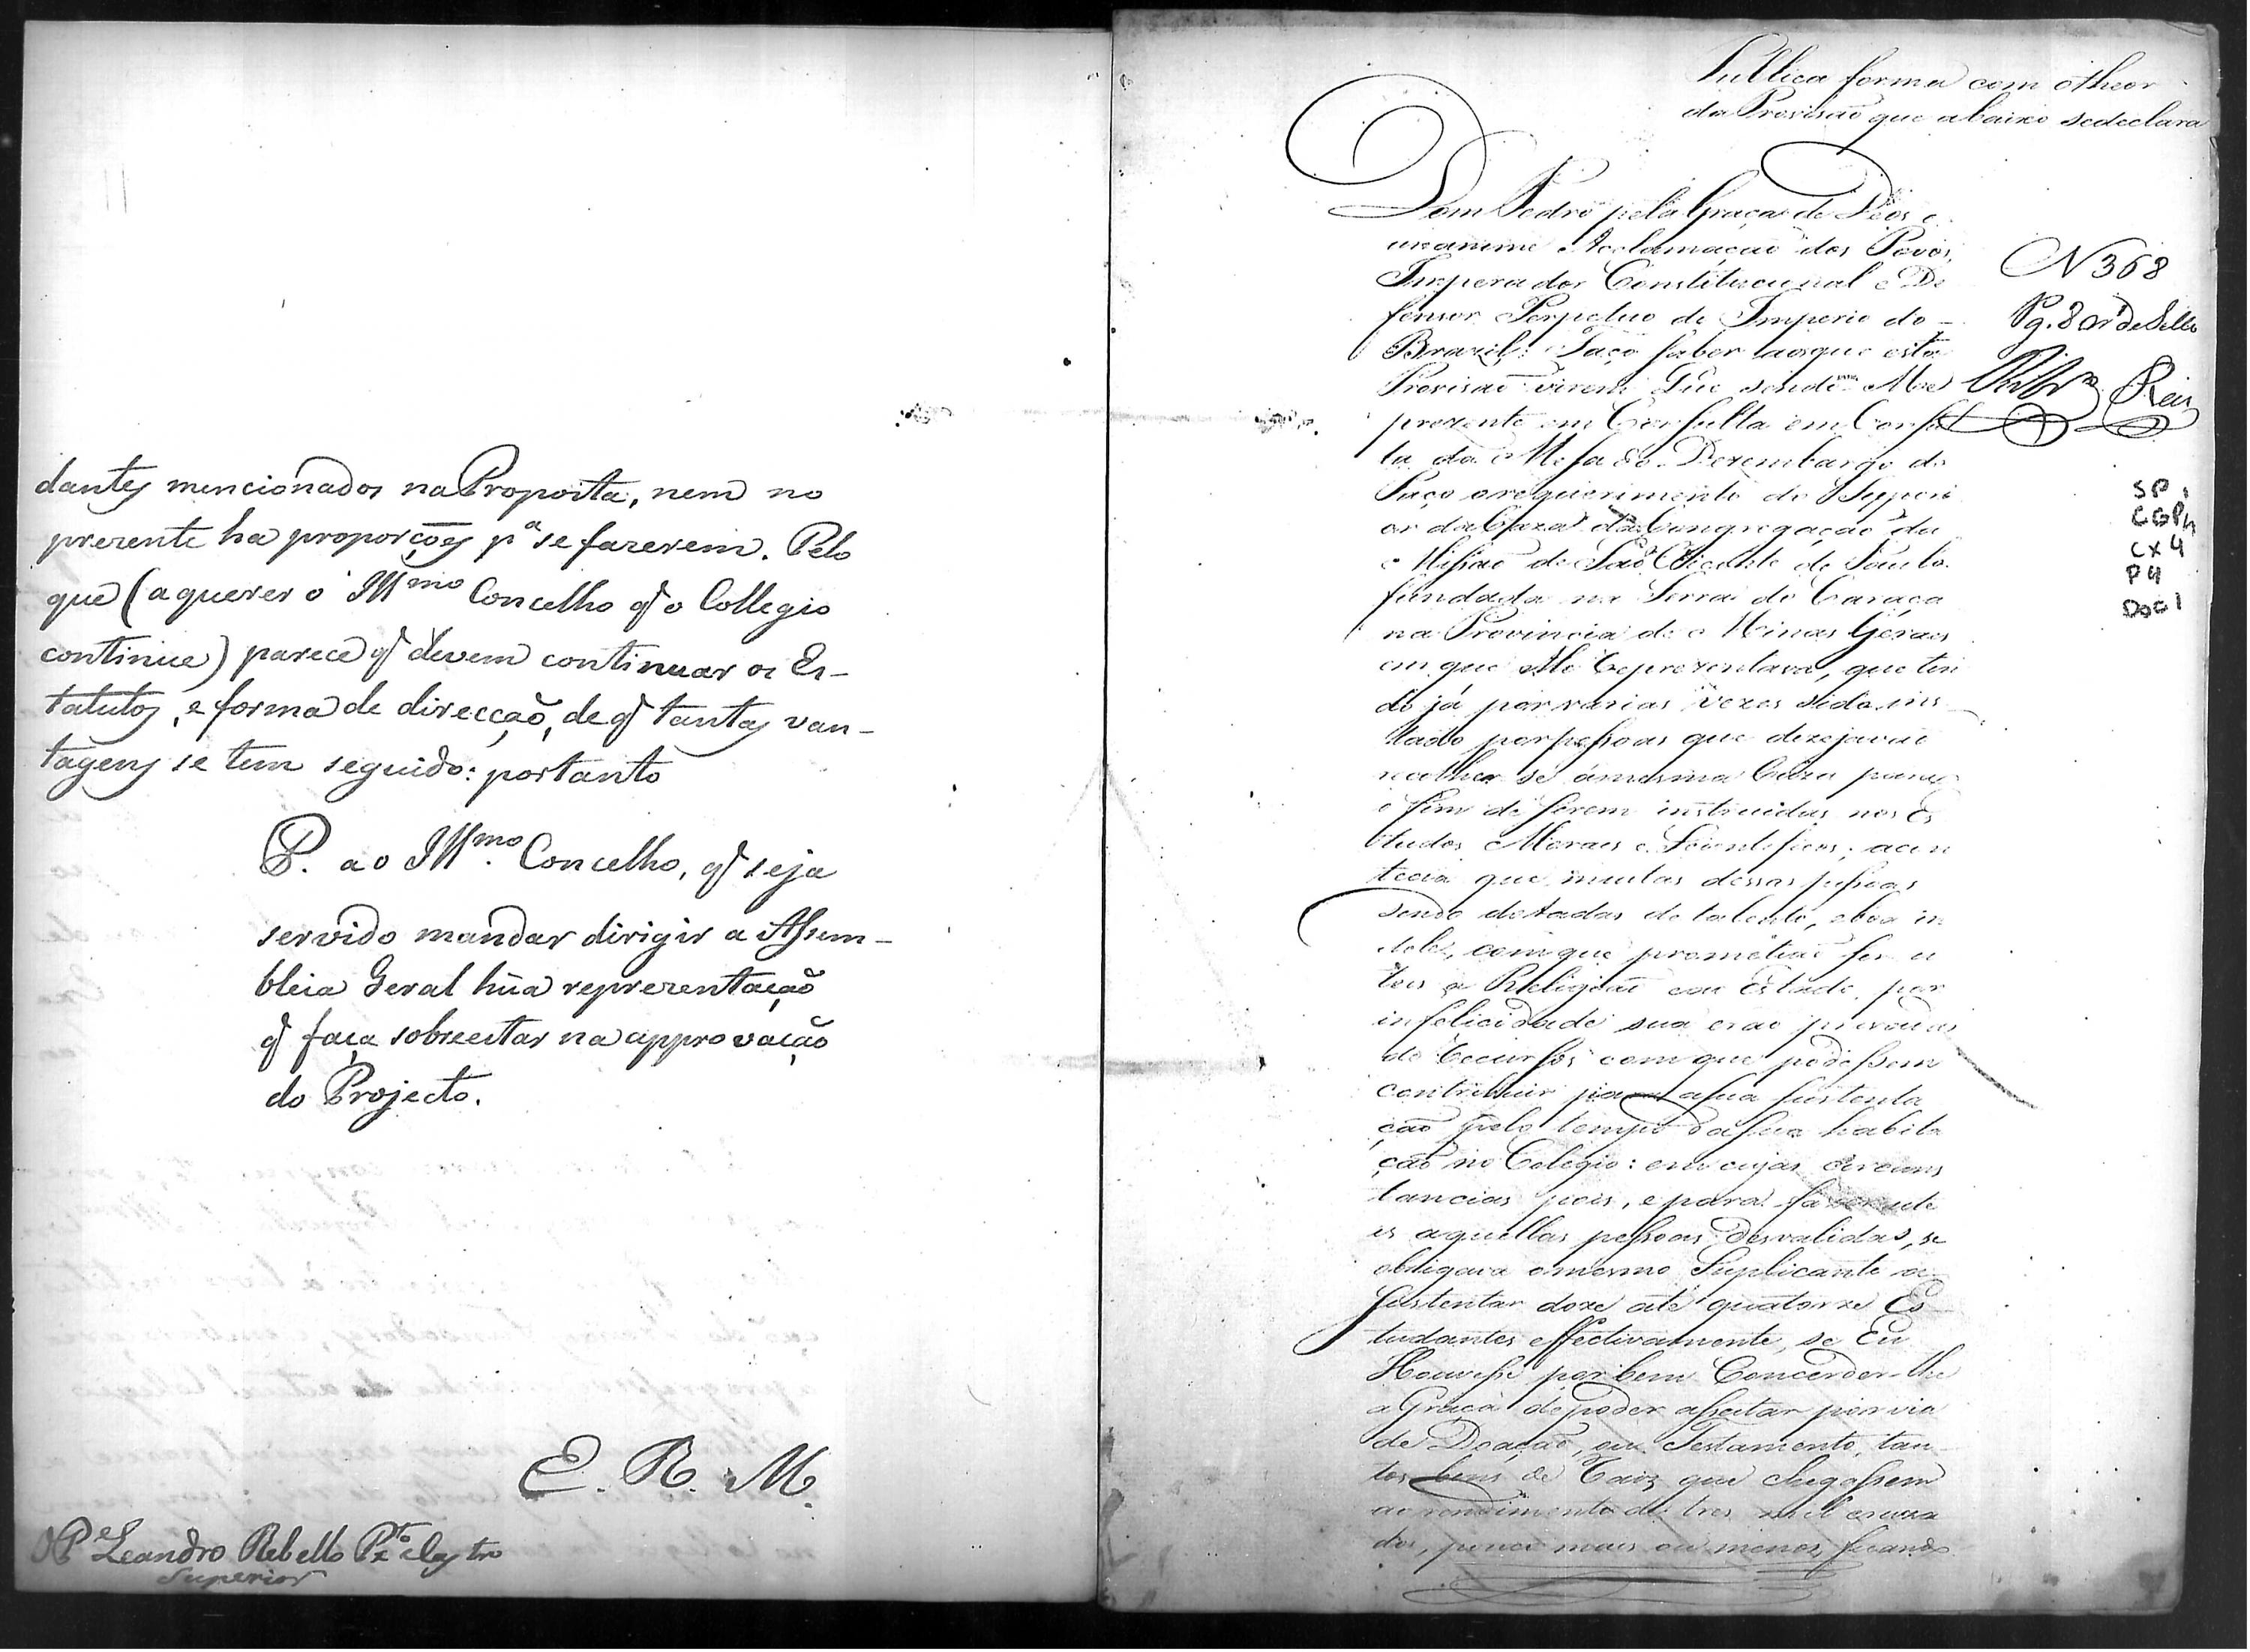 dantes mencionados na Proposta, nem no
prezente ha proporções pª se fazerem. Pelo
que (a querer o Illmo Concelho q̃ o Collegio
continue) parece q̃ devem continuar os Es-
tatutos, e forma de direcção, de q̃ tantas van-
tagens se tem seguido: portanto
P. ao Illmo. Concelho, q̃ seja
servido mandar dirigir a Assem-
bleia Geral hũa reprezentação
q̃ faça sobreestar na approvação
do Projecto.
E. R. M.
O Pe Leandro Rebello Pxto e Castro
Superior
Publica forma com otheor
da Provisão que abaixo sedeclara
Dom Pedro pela Graça de Deos e
unanime Acclamação dos Povos,
Imperador Constitucional e De
fensor Perpetuo do Imperio do
Brazil: Faço saber aosque esta
Provisão virem Que sendo-Me
prezente em Consulta em Consul
ta da Mesa do Dezembargo do
Paço orequerimento do Superi
or da Caza da Congregação da
Missão de São Vicente de Paulo
fundada na Serra do Caraça
na Provincia de Minas Geraes
em que Me Reprezentava, que ten
do já por varias vezes sido ins
tado porpessoas que dezejavão
recolher se ámesma Caza para
o fim de serem instruidas nos Es
tudos Moraes e Scientificos; acon
tecia que muitas dessas pessoas
sendo dotadas de talento, eboa in
dole, comque prometião ser u
teis a Religião eao Estado, por
infelicidade sua erão privadas
de Recursos com que podessem
contribuir para asua sustenta
ção pelo tempo dasua habita
ção no Colegio: em cujas circuns
tancias pois, e para fazer ute
is aquellas pessoas desvalidas, se
obrigava omesmo Suplicante a
sustentar doze até quatorze Es
tudantes effectivamente, se Eu
Houvesse por bem Conceder-lhe
a Graça de poder asseitar por via
de Doação, ou Testamento, tan
tos bens de Raiz que chegassem
ao rendimento de tres mil cruza
dos, pouco mais ou menos, ficando
N 368
Pg. 80 rs de Sello
Reis
SP
CGP4
CX 4
P4
Doc 1